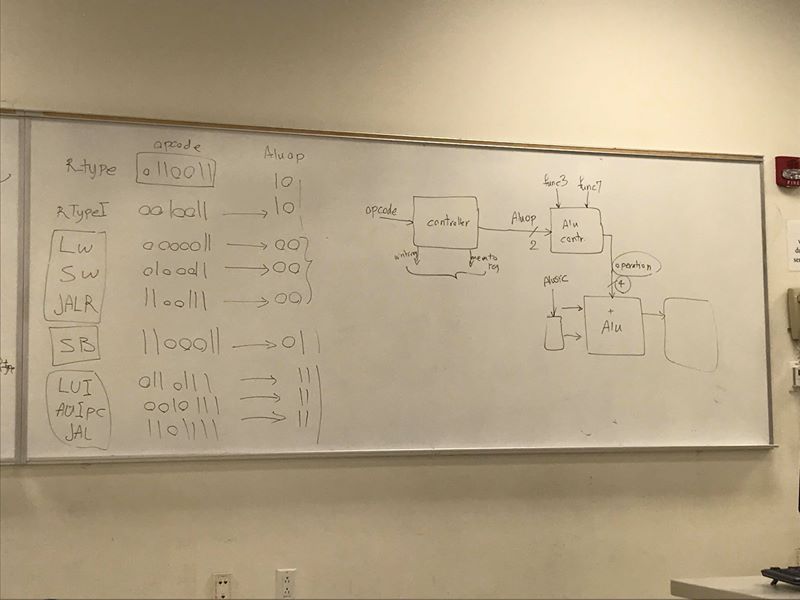 opcode
Aluop
R_type 0110011 10
RTypeI 0010011 10
Lw 0000011 00
Sw 0100011 00
JALR 1100111 00
SB 1100011 01
LUI 0110111 11
AUIpc 0010111 11
JAL 1101111 11
opcode
controller
memto
reg
Aluop
2
func3
func7
Alu
contr.
operation
4
alusrc
+
Alu
FIRE